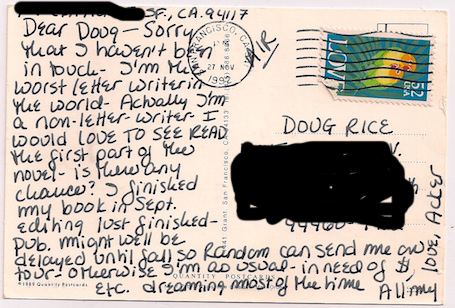 SF, CA. 94117
Dear Doug - Sorry
that I haven't been
in touch - I'm the
worst letter writer in
the world - Actually I'm
a non-letter-writer I
would LOVE TO SEE READ
the first part of the
novel - is there any
chance? I finished
my book in Sept.
editing just finished -
pub. might well be
delayed until fall so Random can send me on
tour - otherwise I'm as usual - in need of $,
etc. dreaming most of the time
All my love, Acker
SAN FRANCISCO, CA
27 NOV
1995
AIR
LOVE
52
USA
DOUG RICE
QUANTITY POSTCARDS
©1989 Quantity Postcards
Grant, San Francisco, CA 94133